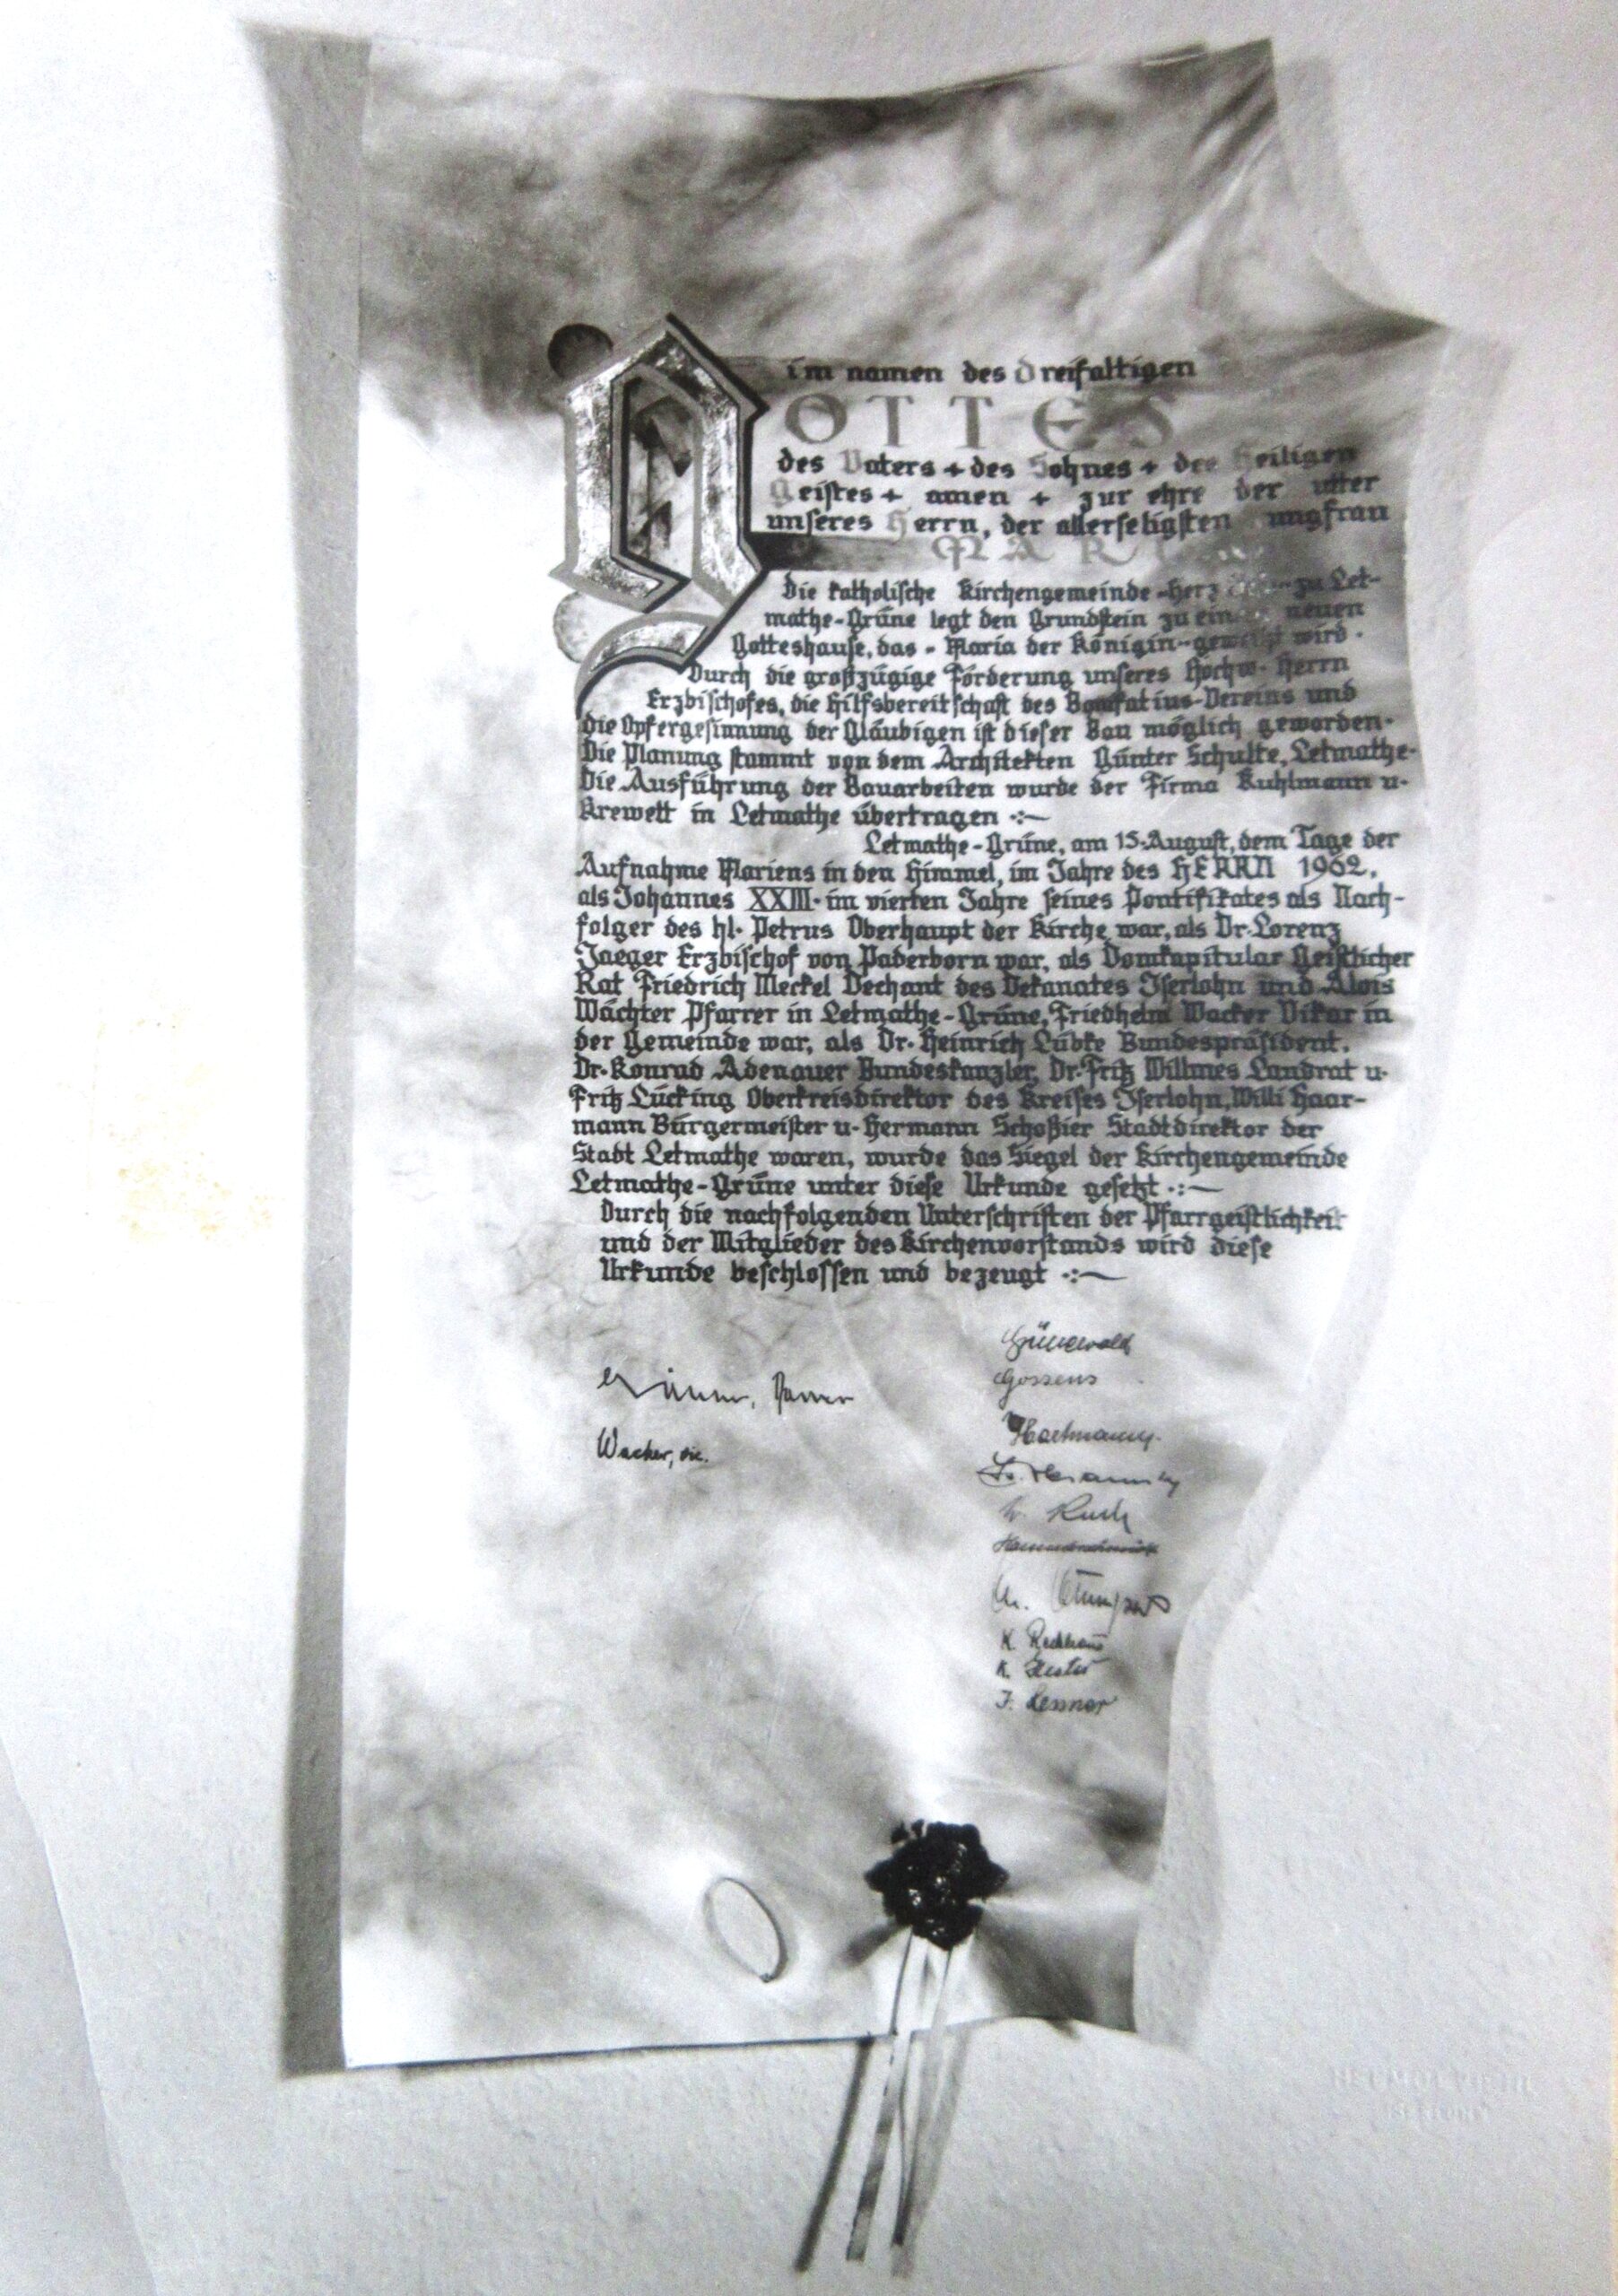 im namen des dreifaltigen
GOTTES
des Vaters + des Sohnes + des Heiligen
Geistes + amen + zur ehre der utter
unseres Herrn, der allerseligsten ungfrau
MARI
Die katholische Kirchengemeinde-Herz zu Let-
mathe-Grüne legt den Grundstein zu ein neuen
Gotteshause, das - Maria der Königin - geweiht wird.
Durch die großzügige Förderung unseres Hochw. Herrn
Erzbischofes, die Hilfsbereitschaft des Bonifatius-Vereins und
die Opfergesinnung der Gläubigen ist dieser Bau möglich geworden.
Die Planung stammt von dem Architekten Günter Schulte, Letmathe.
Die Ausführung der Bauarbeiten wurde der Firma Kuhlmann u.
Krewett in Letmathe übertragen .:~
Letmathe-Grüne, am 15. August, dem Tage der
Aufnahme Mariens in den Himmel, im Jahre des HERRN 1962,
als Johannes XXIII. im vierten Jahre seines Pontifikates als Nach-
folger des hl. Petrus Oberhaupt der Kirche war, als Dr. Lorenz
Jaeger Erzbischof von Paderborn war, als Domkapitular Geistlicher
Rat Friedrich Meckel Dechant des Dekanates Iserlohn und Alois
Wächter Pfarrer in Letmathe-Grüne, Friedhelm Wacker Vikar in
der Gemeinde war, als Dr. Heinrich Lübke Bundespräsident,
Dr. Konrad Adenauer Bundeskanzler, Dr. Fritz Willmes Landrat u.
Fritz Lücking Oberkreisdirektor des Kreises Iserlohn, Willi Haar-
mann Bürgermeister u. Hermann Schoßier Stadtdirektor der
Stadt Letmathe waren, wurde das Siegel der Kirchengemeinde
Letmathe-Grüne unter diese Urkunde gesetzt .:~
Durch die nachfolgenden Unterschriften der Pfarrgeistlichkeit
und der Mitglieder des Kirchenvorstands wird diese
Urkunde beschlossen und bezeugt .:~
Grünewald
Gossens
Hartmann
Wacker, vic.
K.
K.
J.